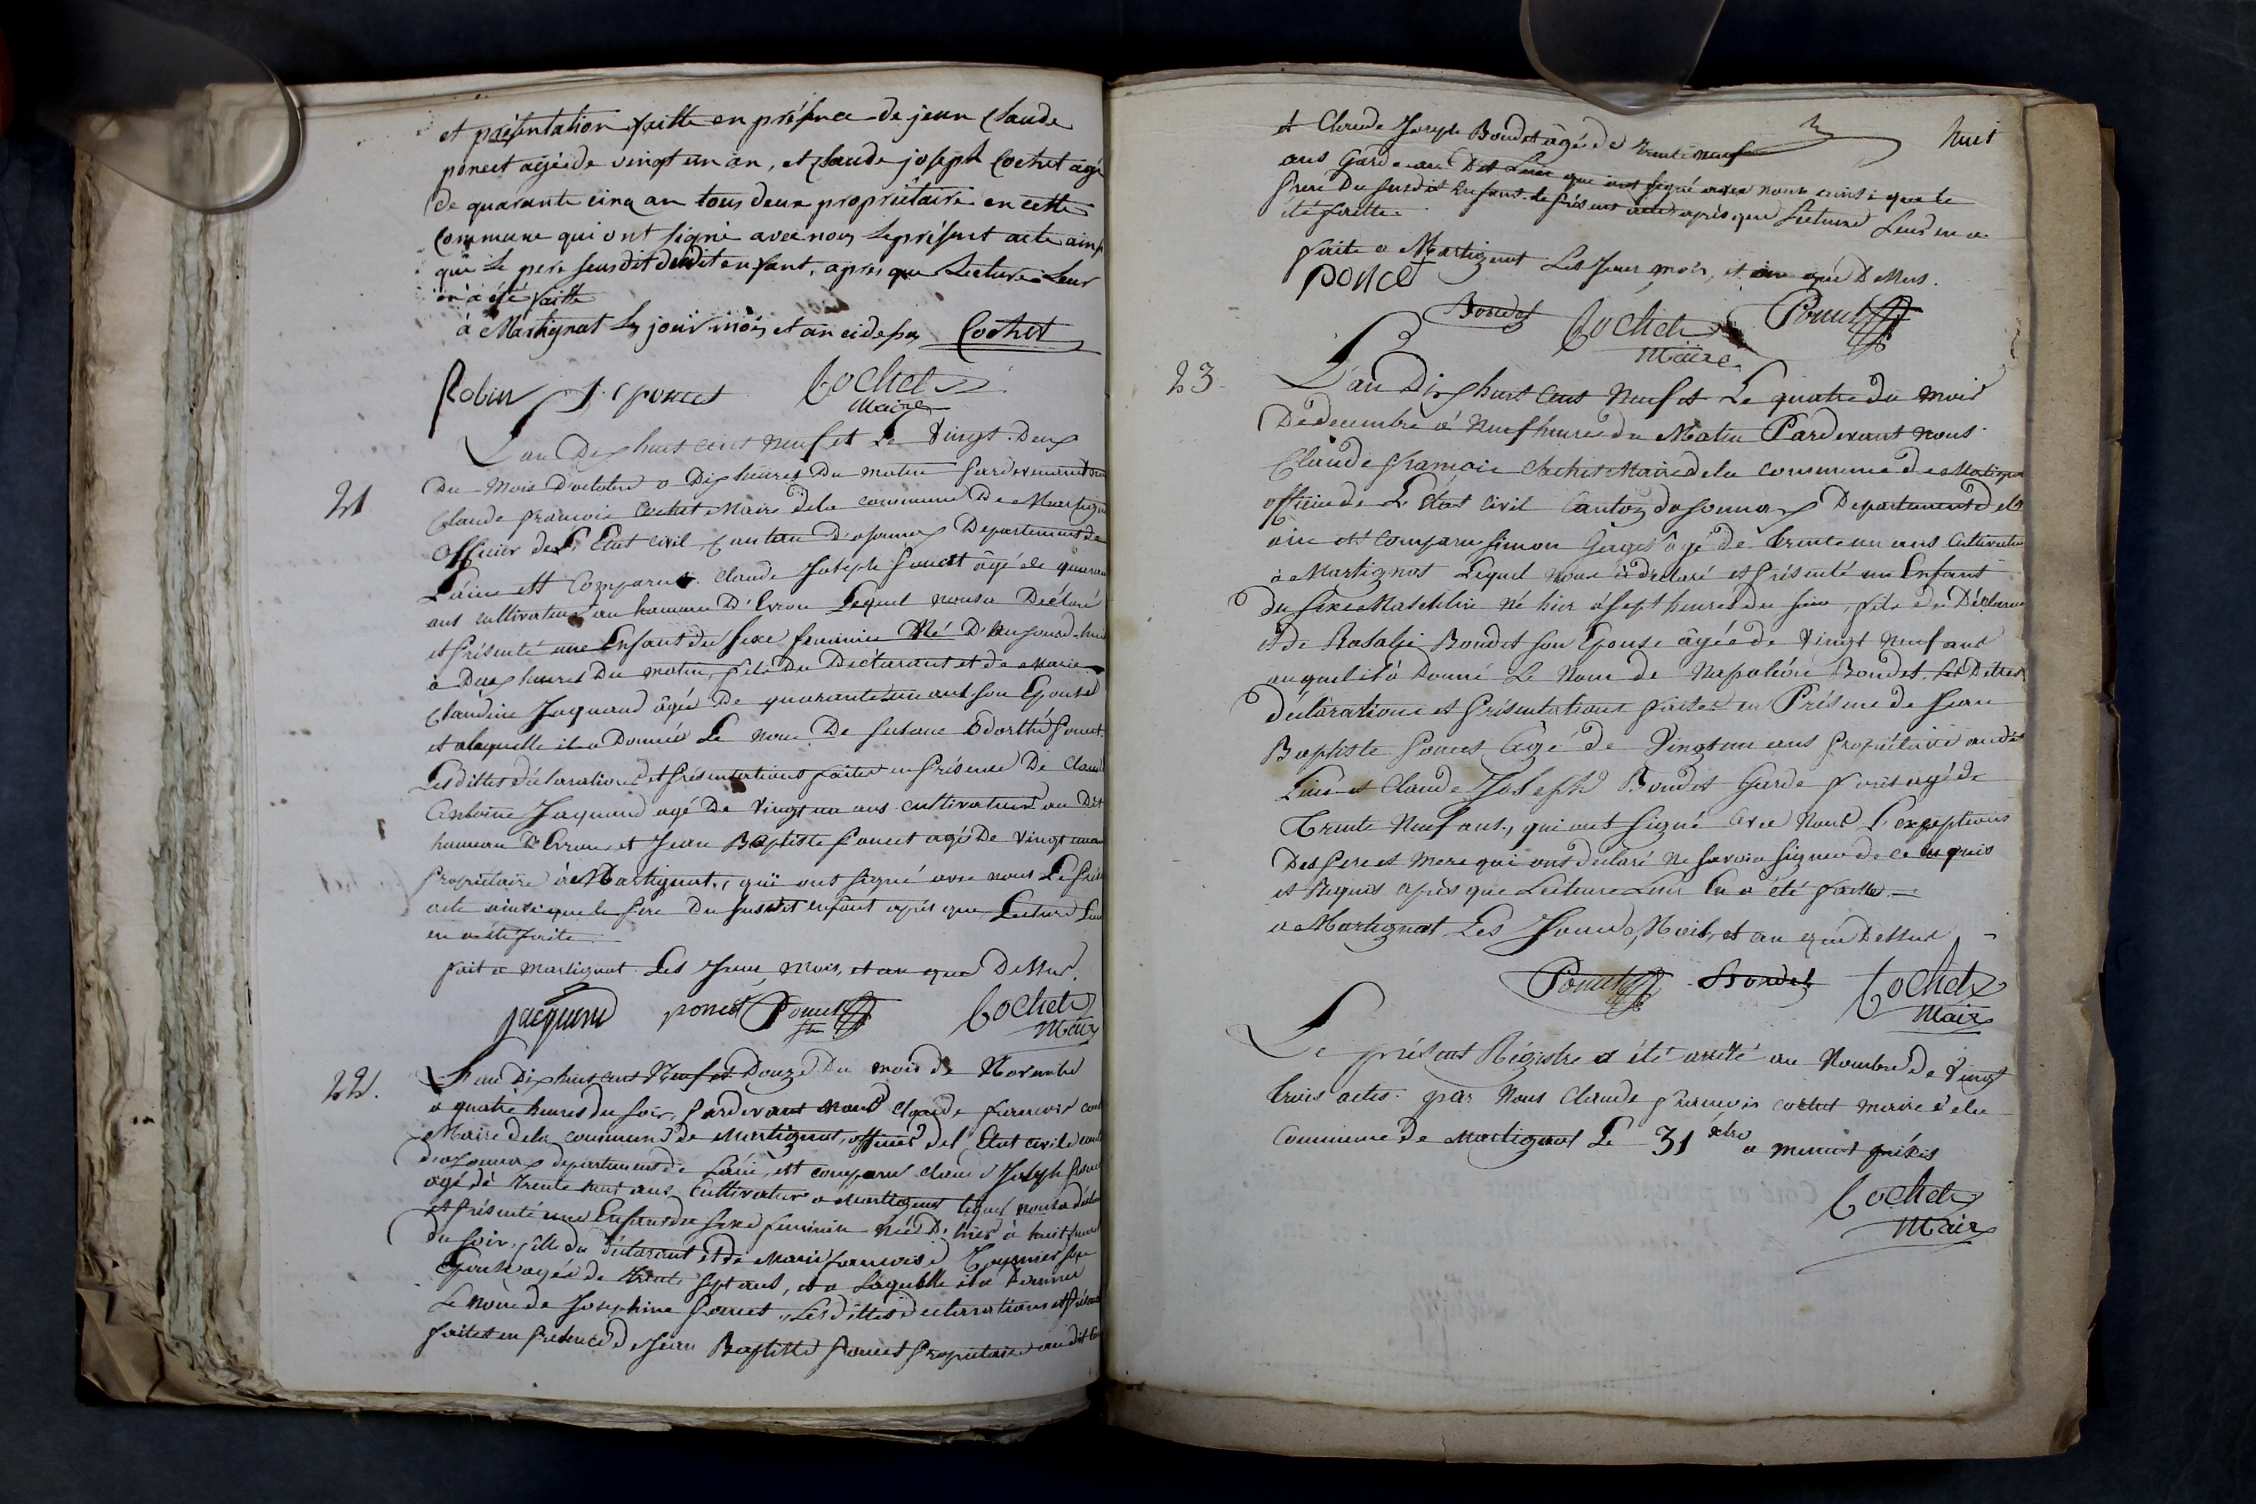 et présentation faitte en présence de jean Claude
poncet agé de vingt un an, et claude joseph Cochet agé
de quarante cinq an tous deux propriétaire en cette
commune qui ont signé avec nous le présent acte ainsi
que le pere susdit dudit enfant, apres que Lecture Leur
en a été faitte
à Martignat les jour mois et an ci dessus Cochet
Robin J. C poncet Cochet
Maire
21
L'an Dix huit cent neuf et Le Vingt Deux
Du Mois D'octobre a Dix heures Du matin Pardevant nous
Claude françois Cochet Maire dela commune De Martignat
Officier de L'Etat Civil Canton D'oyonnax Departement de
L'ain est Comparu Claude Joseph Poncet âgé de quarante
ans cultivateur au hameau D'Evron Lequel nous a Déclaré
et Présenté une Enfant du sexe feminin Né D'aujourd'hui
à Deux heures Du matin, file Du Déclarant et de Marie
Claudine Jaquand âgée De quarante un ans son Epouse
et alaquelle il a Donnée Le nom De Susane Dorothé Poncet
Lesdittes déclarations et Présentations faites en Présence De Claude
Antoine Jaquand agé De Vingt un ans cultivateur au Dit
hameau D'Evron et Jean Baptiste Poncet agé De Vingt un an
Propriétaire à Martignat, qui ont signé avec nous Le Présent
acte ainsi que le Pere Du susdit enfant après que Lecture Leur
en a été faite
fait a Martignat Les Jour, mois, et an que Dessus.
jacquand poncet Poncet Cochet
Maire
22.
L'an Dix huit cent Neuf et Douze Du mois de Novembre
a quatre heures du soir, Pardevant Nous Claude françois Cochet
Maire dela commune de Martignat, officier del'Etat civil canton
d'oyonnax departement de L'ain, est comparu claude Joseph Poncet
agé de trente huit ans Cultivateur a Martignat lequel nous a déclaré
et Présenté une Enfant du sexe feminin née D'hier à huit heures
du soir, fille du déclarant et de Marie françoise Tournier son
Epouse agée de trente sept ans, et a laquelle il a Donné
Le nom de Josephine Poncet, Lesdittes declarations et Présentations
faites en Présence de Jean Baptiste Poncet Propriétaire audit lieu
huit
et Claude Joseph Boudet âgé de trente neuf
ans Garde au Dit Lieu qui ont signé avec nous ainsi que le
Pere Du susdit Enfant le Présent acte après que Lecture Leur en a
été faitte.
faite a Martignat Les Jour, mois, et an que Dessus.
poncet
Boudet Cochet Poncet
Maire
23.
L'an Dix huit cent Neuf et Le quatre du mois
De decembre à Neuf heures du Matin Pardevant nous
Claude françois Cochet Maire de la commune de Martignat
officier de L'Etat Civil Canton doyonnax Departement de l'
ain est comparu simon âgé de trente un ans Cultivateur
à Martignat Lequel nous a déclaré et Présenté un Enfant
du sexe Masculin né hier à sept heures du soir, fils du Déclarant
et de Rosalie Boudet son Epouse âgée de Vingt Neuf ans
auquel il a Donné Le Nom de Napoléon Boudet. Les Dittes
déclarations et Présentations faites en Présence de Jean
Baptiste Poncet Agé de Vingt un ans Propriétaire au dit
Lieu et Claude Joseph Boudet Garde foret agé de
Trente Neuf ans, qui ont signé avec Nous L'exception
Des Pere et Mere qui ont declaré ne savoir signer de ce enquis
et Requis après que Lecture Leur En a été faitte
a Martignat Les Jour, Mois, et an que Dessus
Poncet Boudet Cochet
Maire
Le présent Régistre a été arrêté au Nombre de Vingt
trois actes par Nous Claude françois Cochet maire dela
Commune de Martignat Le 31 xbre a minuit précis
Cochet
Maire